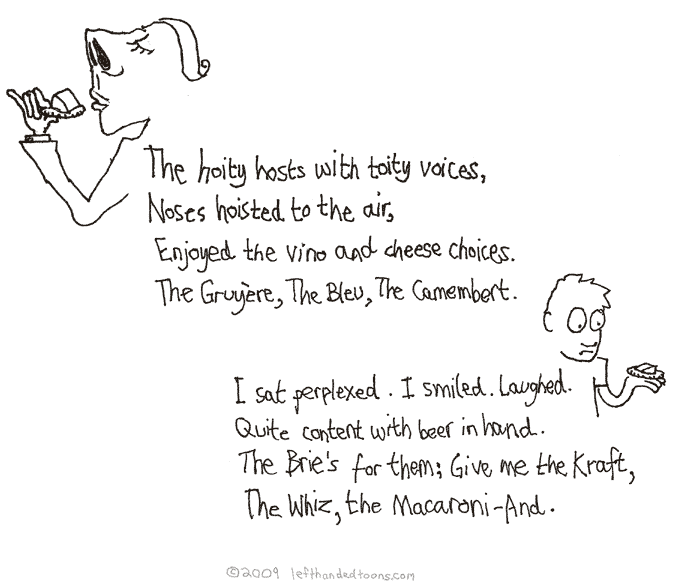 The hoity hosts with toity voices,
Noses hoisted to the air,
Enjoyed the vino and cheese choices.
The Gruyère, The Bleu, The Camembert.
I sat perplexed. I smiled. Laughed.
Quite content with beer in hand.
The Brie's for them; Give me the Kraft,
The Whiz, the Macaroni-And.
©2009 lefthandedtoons.com